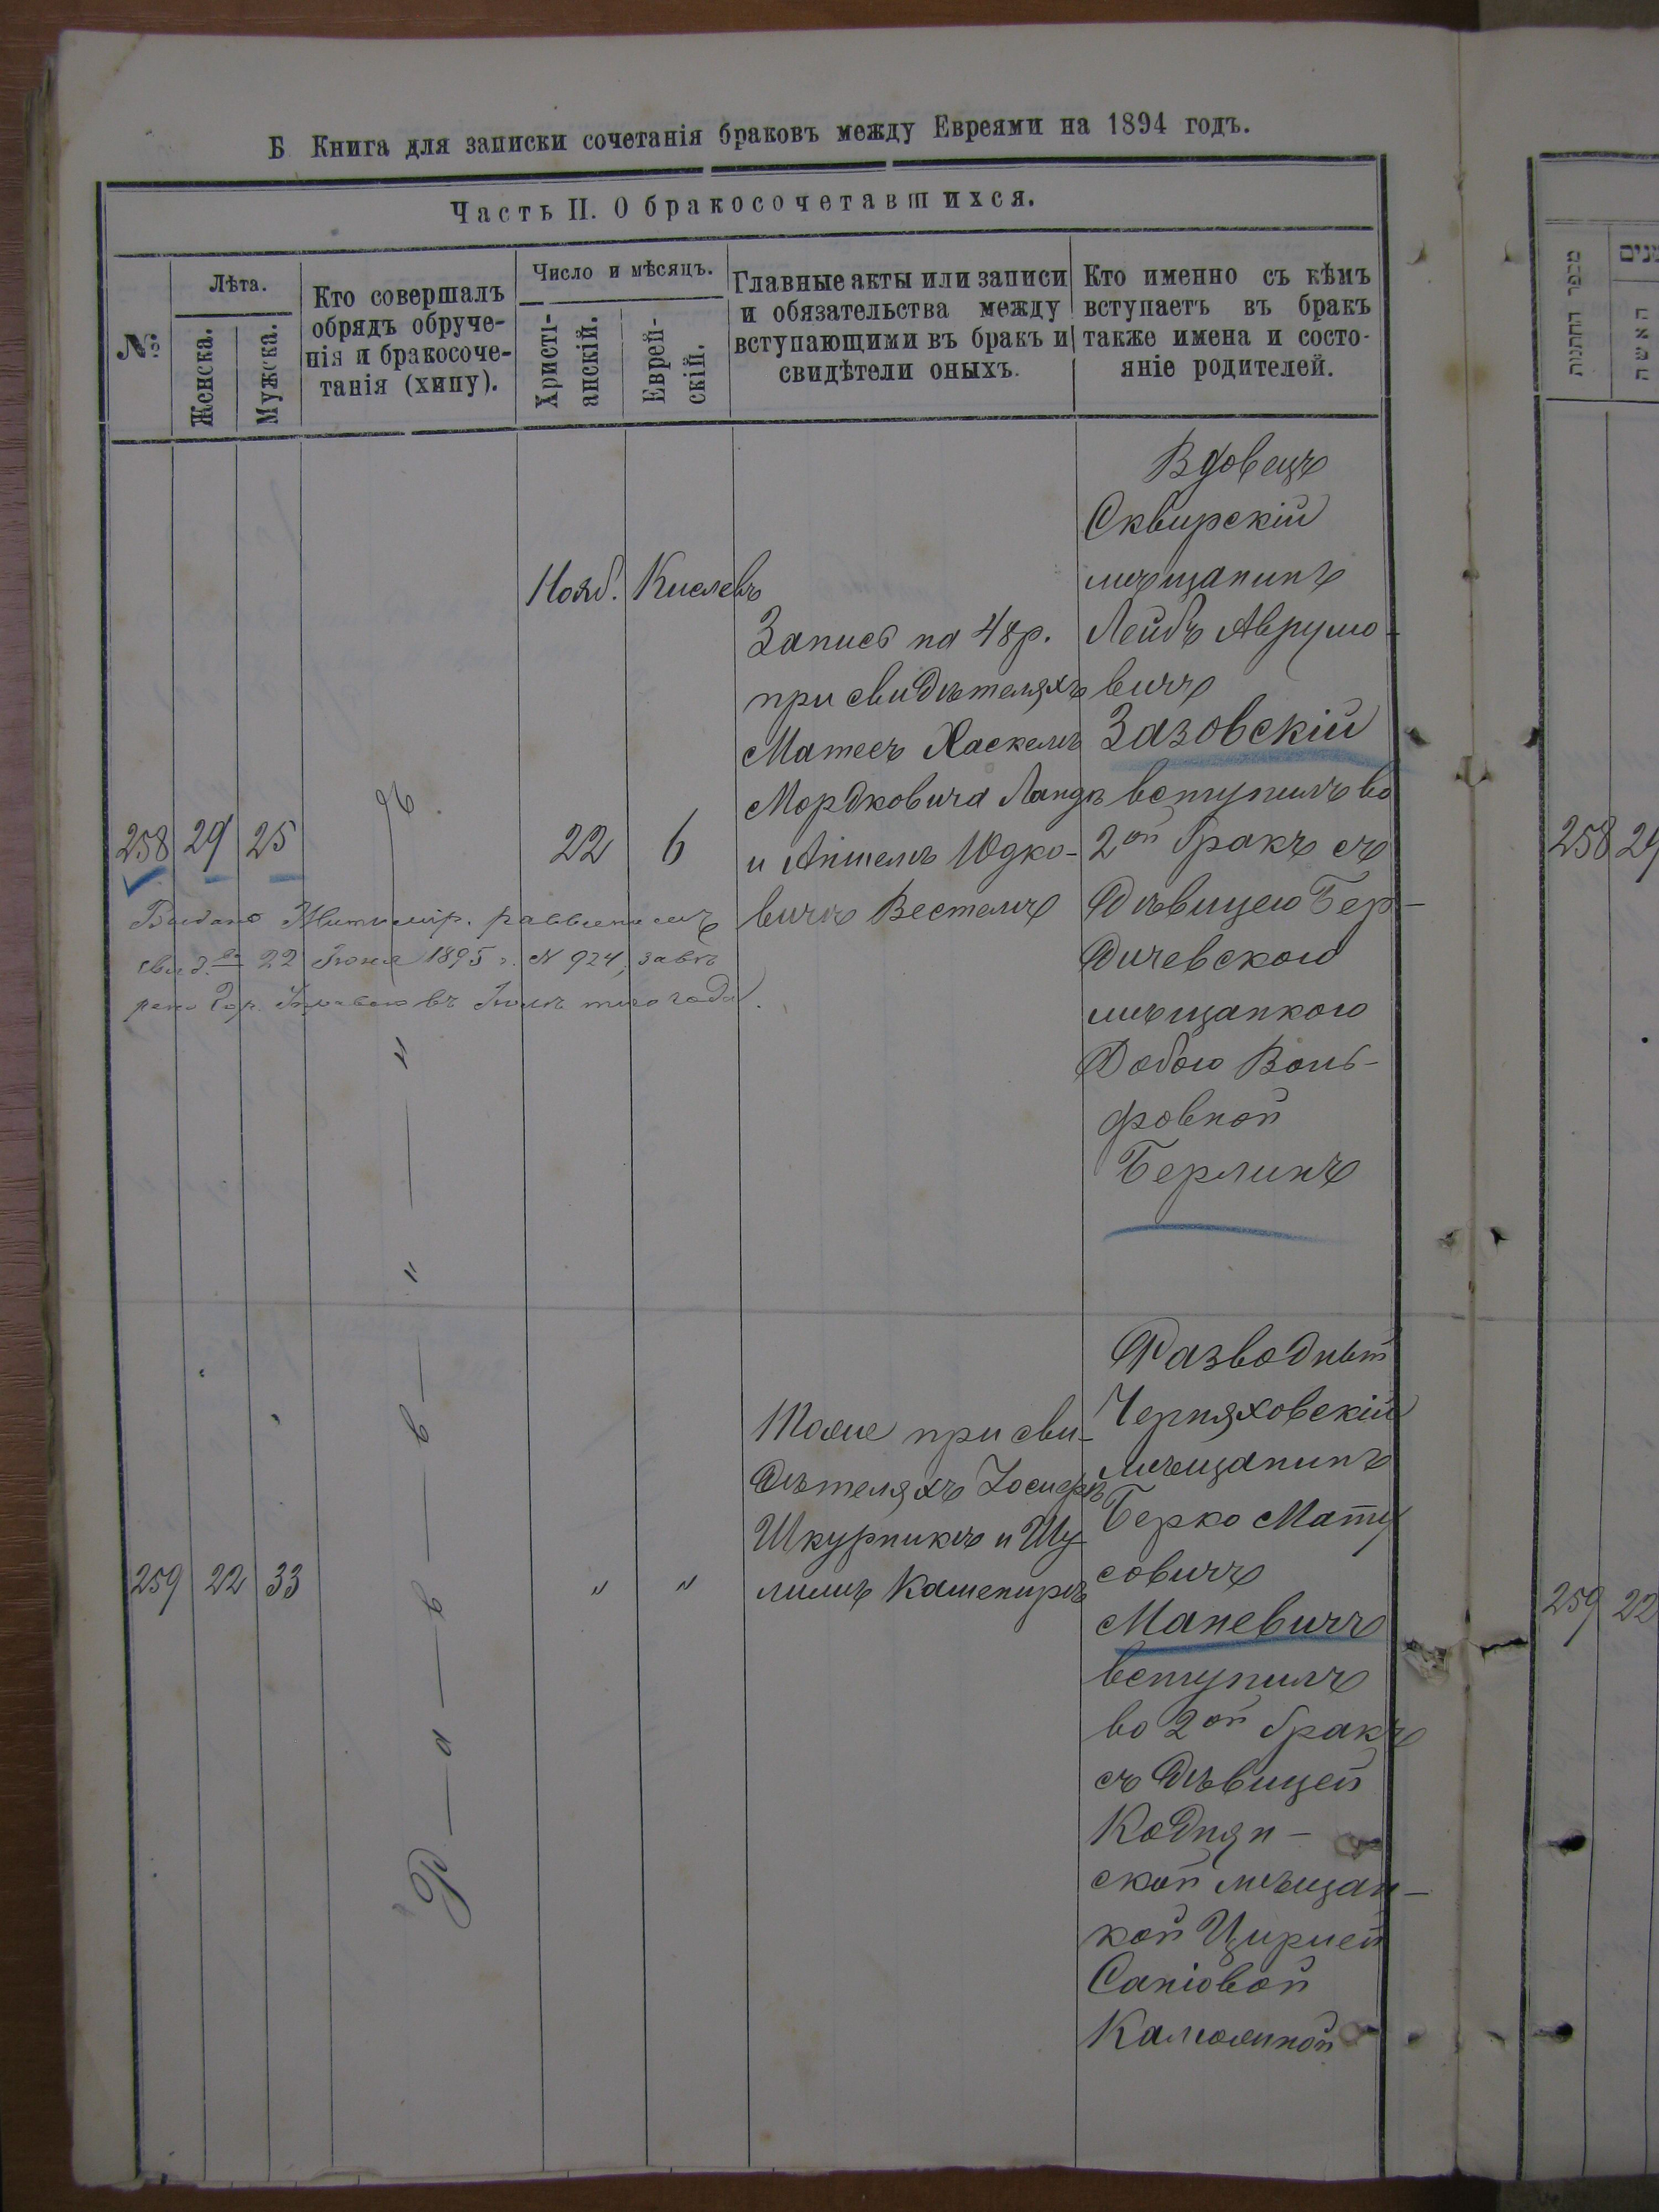 Б Книга для записки сочетанія браковъ между Евреями на 1894 годъ.
Часть II. О бракосочетавшихся.
№
Лѣта.
Женска.
Мужска.
Кто совершалъ
обрядъ обруче-
нія и бракосоче-
танія (хипу).
Число и мѣсяцъ.
Христі-
анскій.
Еврей-
скій.
Главные акты или записи
и обязательства между
вступающими въ бракъ и
свидѣтели оныхъ.
Кто именно съ кѣмъ
вступаетъ въ бракъ
также имена и состо-
яніе родителей.
258
29
25
Нояб.
22
Кислевъ
6
Запись на 48 р.
при свидѣтеляхъ
Матесъ Хаскелъ
Мордковича Ландъ
и Аншелъ Юдко-
вичъ Вестелъ
Вдовецъ
Сквирскій
мѣщанинъ
Лейбъ Аврумо-
вичъ
Зазовскій
вступилъ во
2ой бракъ съ
дѣвицею Бер-
дичевскою
мѣщанкою
Добою Воль-
фовной
Берлинъ
Выдано Житомір. раввиномъ
свид.во 22 Іюня 1895 г. N 924, завѣ
рено Гор. Управою въ Іюлѣ того года.
Р—а—в—в—
259
22
33
"
"
Тоже при сви-
дѣтеляхъ Іосифъ
Шкурникъ и Шу
лимъ Кашепиръ
Разводный
Черняховскій
мѣщанинъ
Берко Мату
совичъ
Маневичъ
вступилъ
во 2ой бракъ
съ дѣвицей
Коднян-
ской мѣщан-
кой Цирлей
Саніовой
מספר החתונות
האשה
258 29
259 22